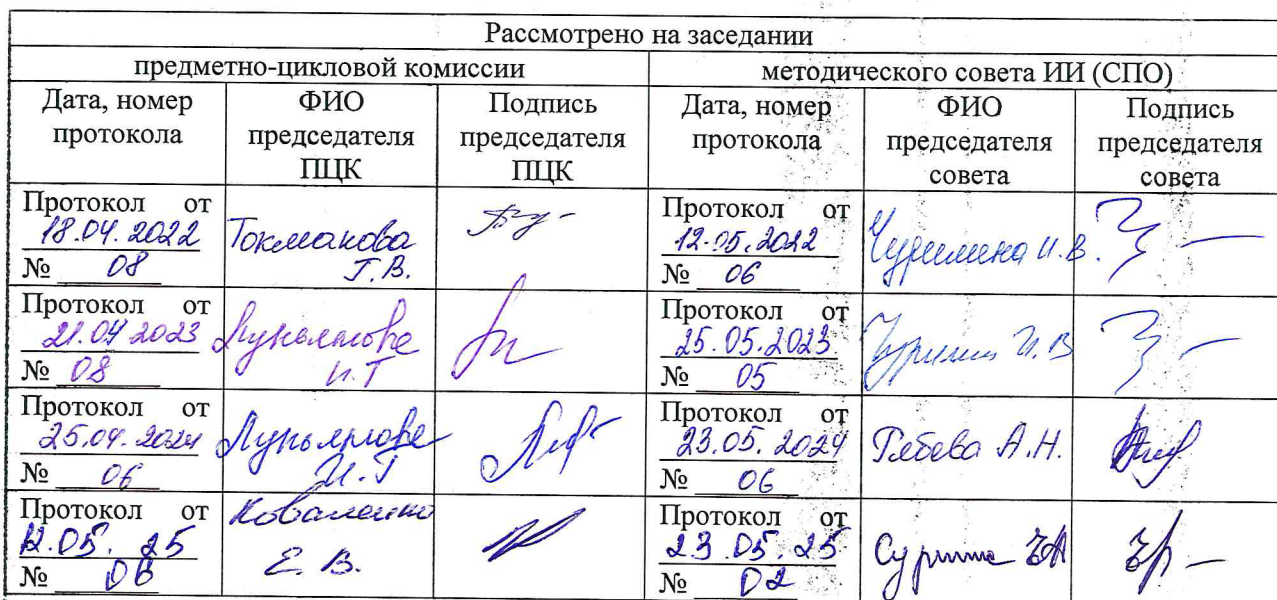 Рассмотрено на заседании
предметно-цикловой комиссии методического совета ИИ (СПО)
Дата, номер протокола ФИО председателя ПЦК Подпись председателя ПЦК Дата, номер протокола ФИО председателя совета Подпись председателя совета
Протокол от 18.04.2022 № 08 Токманова Т.В. Протокол от 12.05.2022 № 06 И.В.
Протокол от 21.04 2023 № 08 И.Т Протокол от 25.05.2023 № 05 И.В
Протокол от 25.04.2024 № 06 И.Т Протокол от 23.05.2024 № 06 А.Н.
Протокол от 12.05.25 № 06 Коваленко Е.В. Протокол от 23.05.25 № 02